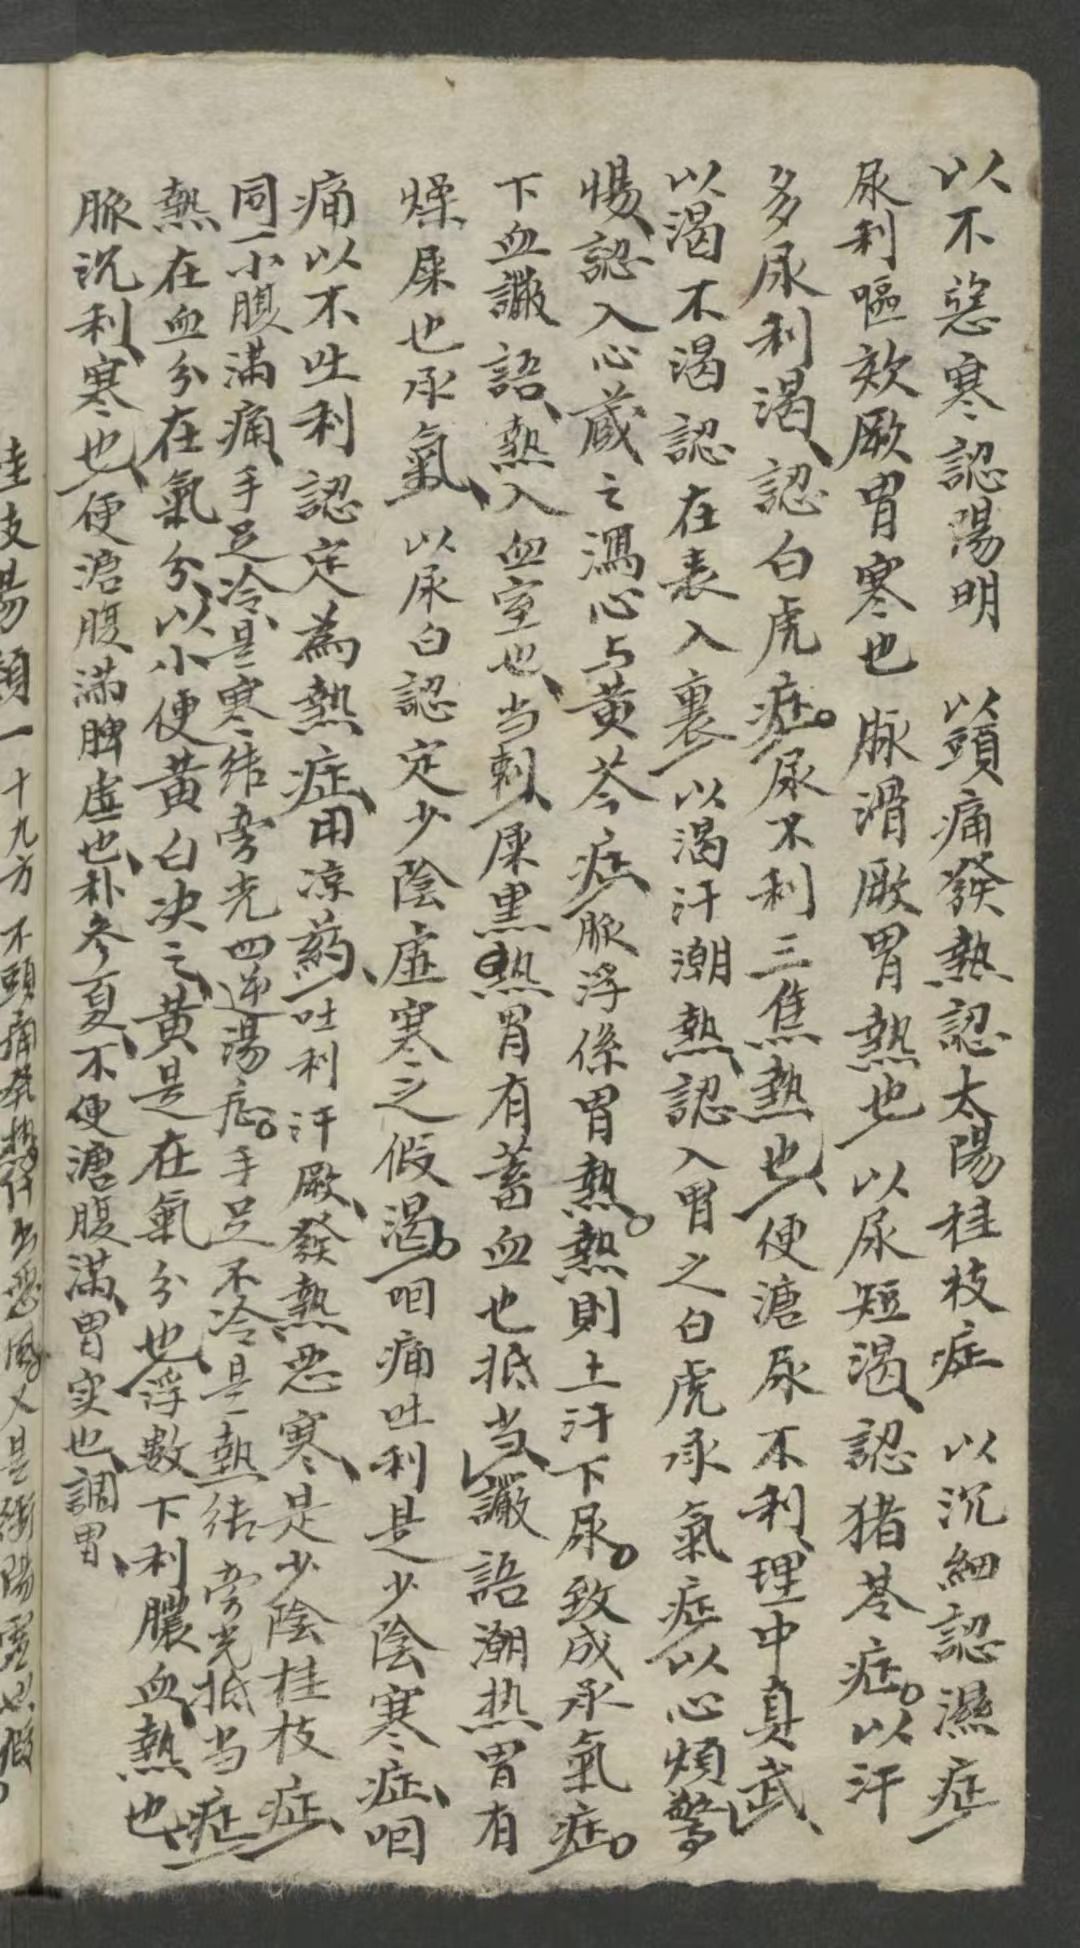 以不惡寒認陽明　以頭痛發熱認太陽桂枝症　以沉細認濕症
尿利嘔欬厥胃寒也　脉滑厥胃熱也　以尿短渴認猪苓症。以汗
多尿利渴認白虎症。尿不利三焦熱也便溏尿不利理中真武
以渴不渴認在表入裏　以渴汗潮熱認入胃之白虎承氣症以心煩驚
惕認入心蔵之瀉心与黄芩症脈浮係胃熱。熱則土汗下尿。致成承氣症。
下血讝語熱入血室也当刺屎黒熱胃有蓄血也抵当讝語潮热胃有
燥屎也承氣　以尿白認定少陰虛寒之假渴。咽痛吐利是少陰寒症咽
痛以不吐利認定為熱症用凉药吐利汗厥發熱恶寒是少陰桂枝症
同一小腹滿痛手足冷是寒结旁光四逆湯症。手足不冷是熱结旁光抵当症
熱在血分在氣分以小便黃白决之黄是在氣分也浮數下利膿血熱也
脈沉利寒也便溏腹滿脾虛也朴參夏不便溏腹滿胃实也調胃
桂枝湯類一十九方　不頭痛發热仟出惡風又是衛陽虛也假。